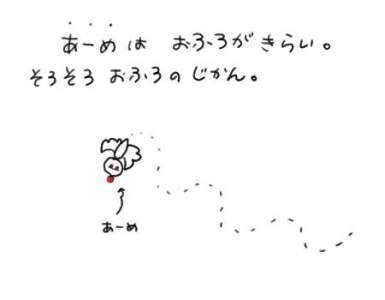 あーめは おふろがきらい。
そろそろ おふろのじかん。
あーめ